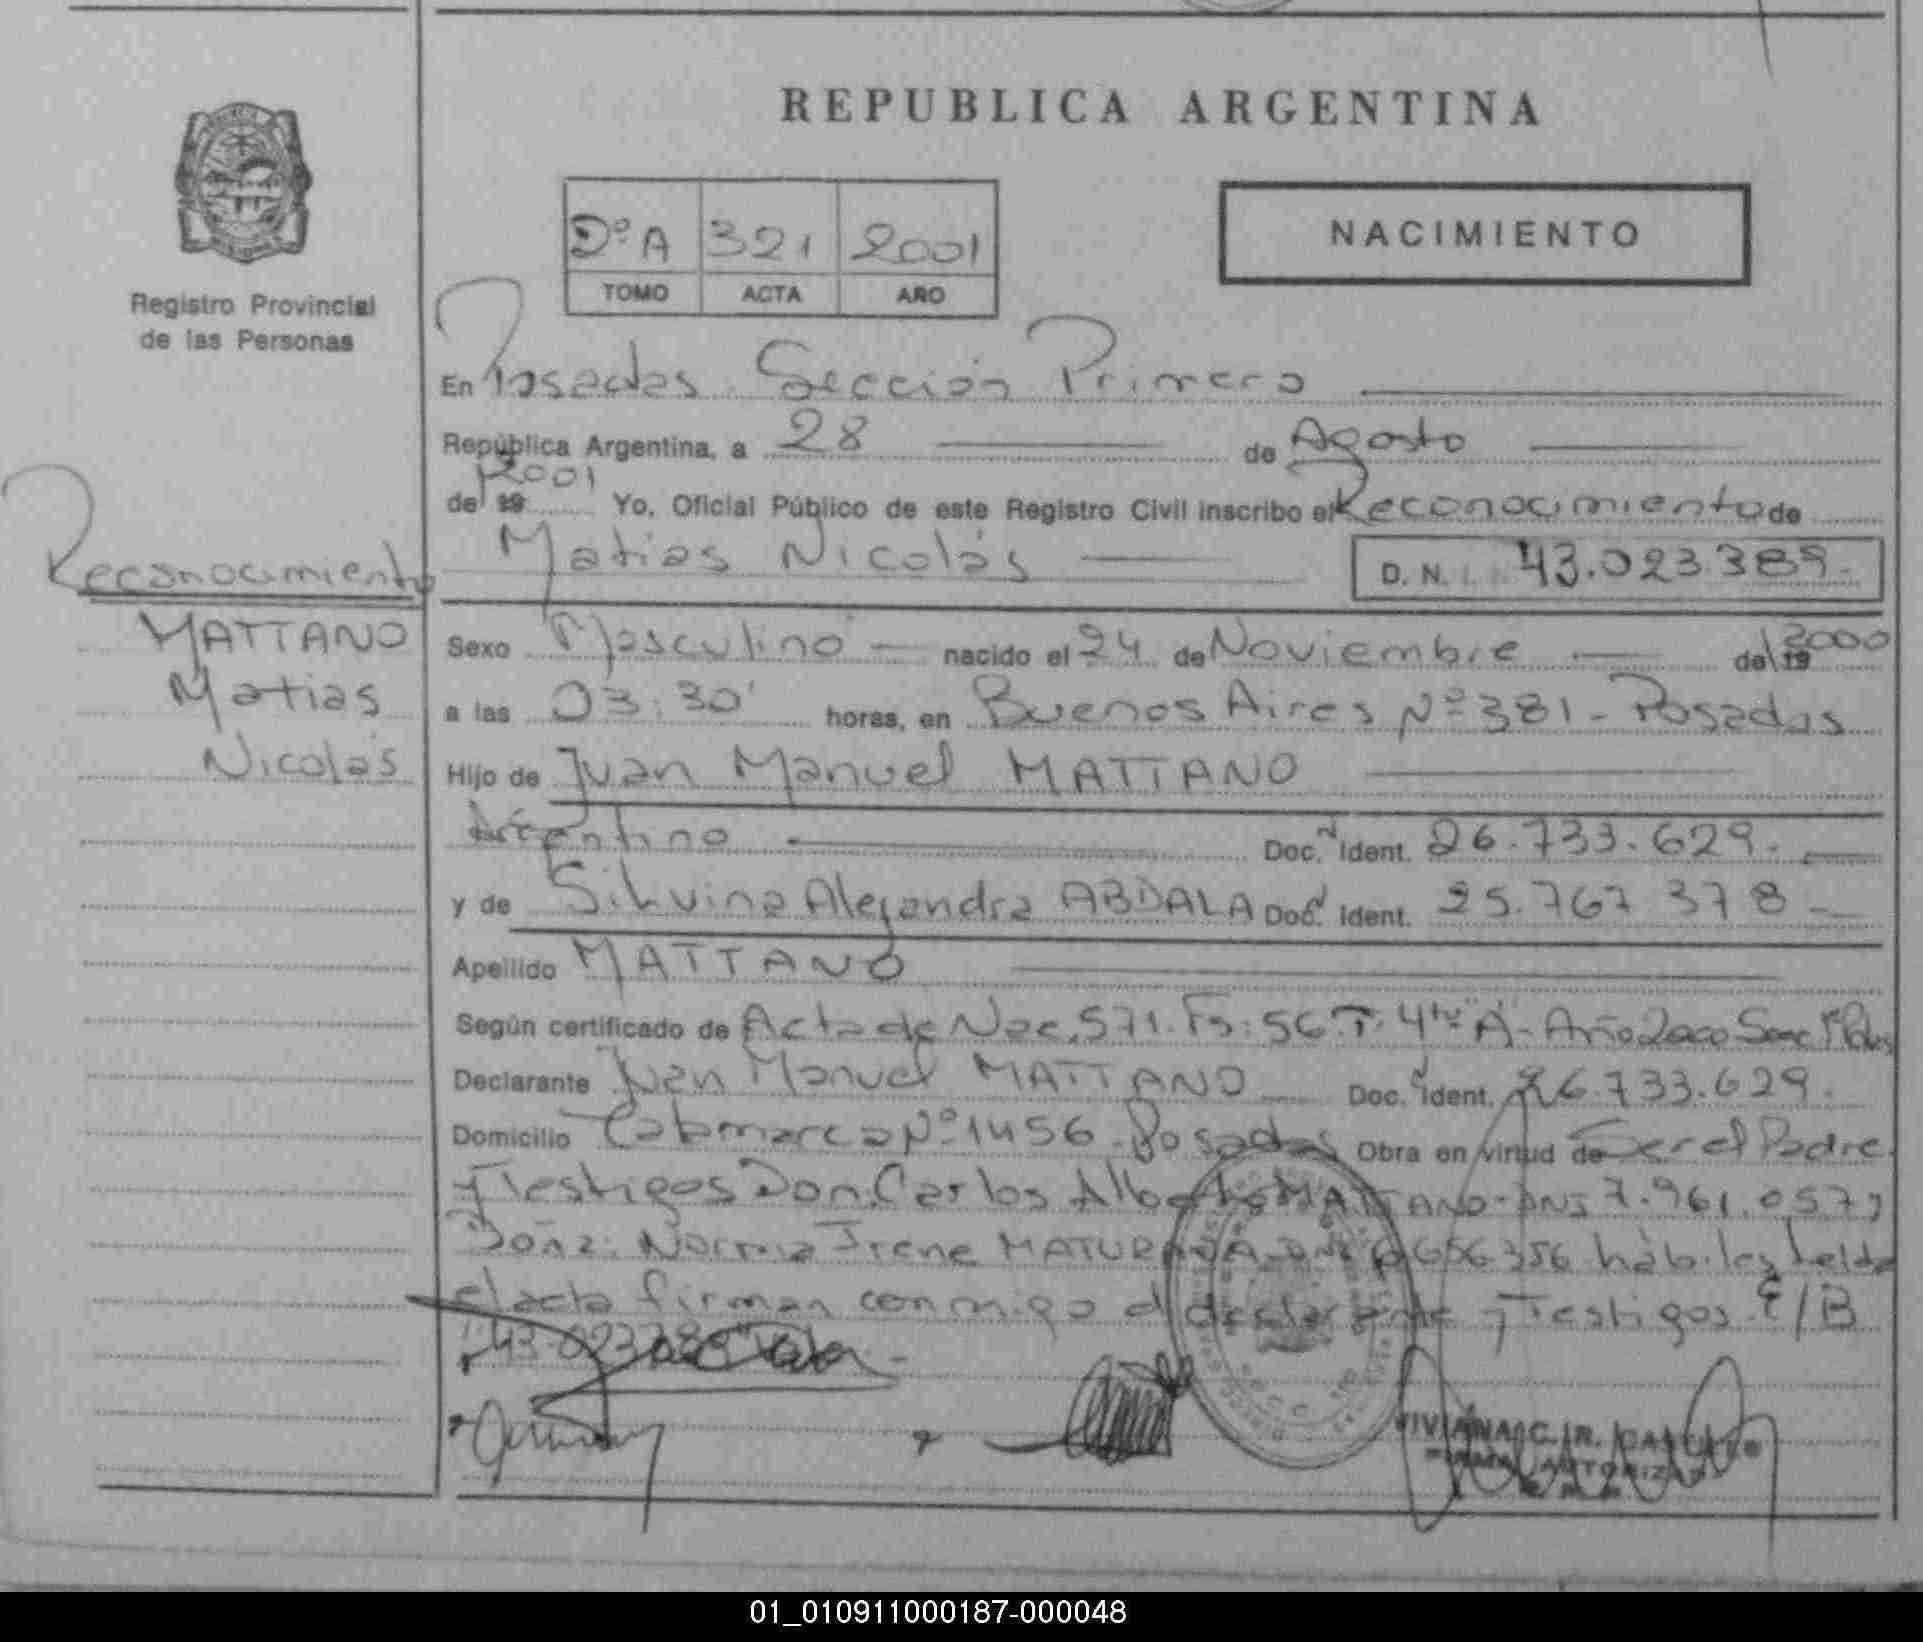 REPUBLICA ARGENTINA
NACIMIENTO
Dº A 321 2001
TOMO ACTA AÑO
Registro Provincial
de las Personas
En Posadas Sección Primera
República Argentina, a 28 de Agosto
de 19 2001 Yo, Oficial Público de este Registro Civil inscribo el Reconocimiento de
Matias Nicolás D. N. I. 43.023.389.-
Reconocimiento
MATTANO
Matias
Nicolás
Sexo Masculino nacido el 24 de Noviembre de 19 2000
a las 03:30' horas, en Buenos Aires Nº 381 - Posadas
Hijo de Juan Manuel MATTANO
Argentino Doc. Ident. 26.733.629.-
y de Silvina Alejandra ABDALA Doc. Ident. 25.767 378 -
Apellido MATTANO
Según certificado de Acta de Nac. 571. Fs: 56 T: 4to "A" - Año 2000 Secc 1ª
Declarante Juan Manuel MATTANO Doc. Ident. 26.733.629.
Domicilio Catamarca Nº 1456 - Posadas Obra en virtud de Ser el Padre
y Testigos Don: Carlos Alberto MATTANO - DNI 7.961.057 y
Doña: Norma Irene MATURANA 656.356 hábiles, leída
el acta firman conmigo el declarante y Testigos. E/B
VIVIANA C. R.
01_010911000187-000048